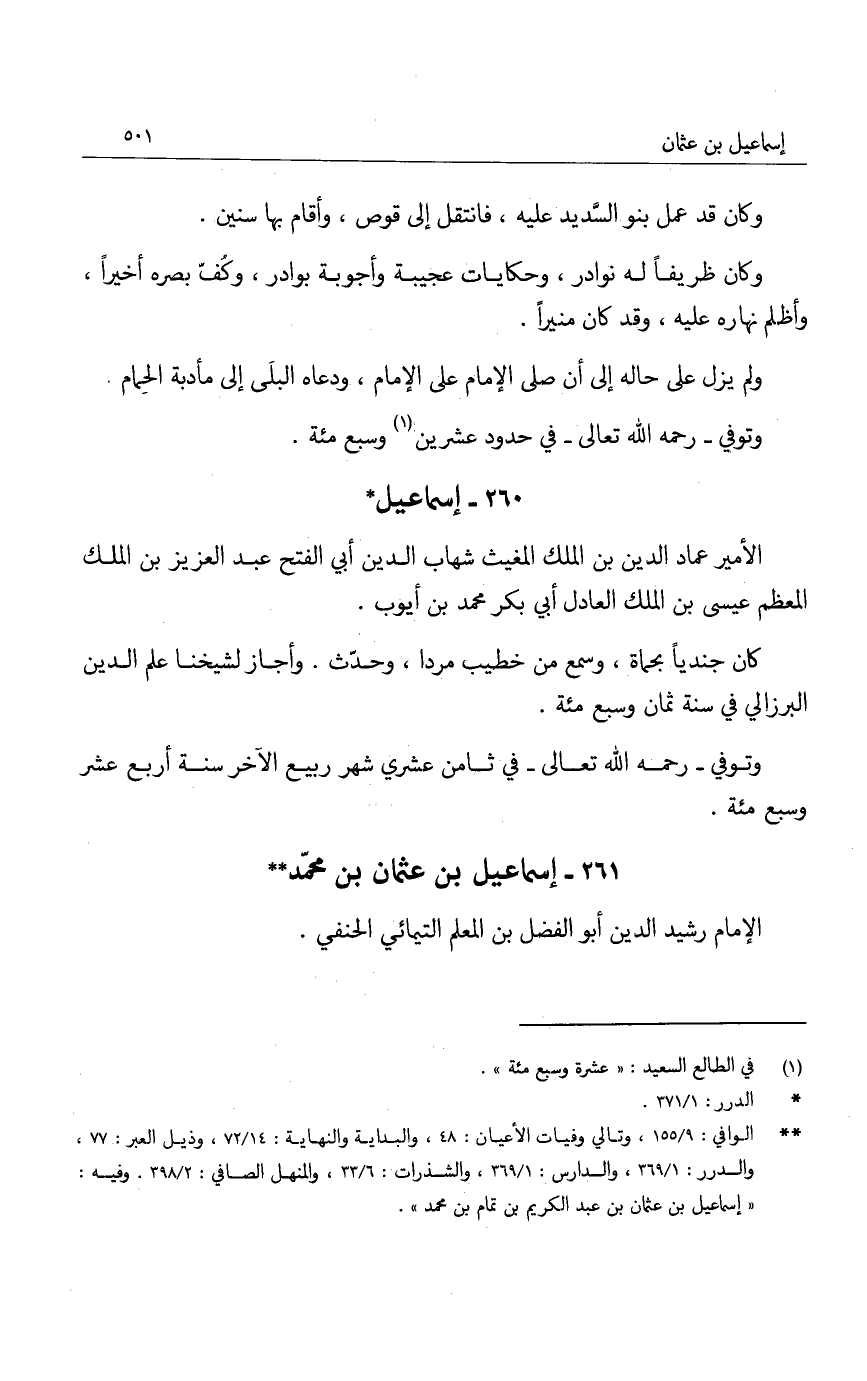 إسماعيل بن عثمان ٥٠١
وكان قد عمل بنو السَّديد عليه ، فانتقل إلى قوص ، وأقام بها سنين .
وكان ظريفاً له نوادر ، وحكايات عجيبة وأجوبة بوادر ، وكُفّ بصره أخيراً ،
وأظلم نهاره عليه ، وقد كان منيراً .
ولم يزل على حاله إلى أن صلى الإمام على الإمام ، ودعاه البلَى إلى مأدبة الحِمام .
وتوفي ـ رحمه الله تعالى ـ في حدود عشرين(١) وسبع مئة .
٢٦٠ ـ إسماعيل*
الأمير عماد الدين بن الملك المغيث شهاب الدين أبي الفتح عبد العزيز بن الملك
المعظم عيسى بن الملك العادل أبي بكر محمد بن أيوب .
كان جندياً بحماة ، وسمع من خطيب مردا ، وحدّث . وأجاز لشيخنا علم الدين
البرزالي في سنة ثمان وسبع مئة .
وتوفي ـ رحمه الله تعالى ـ في ثامن عشري شهر ربيع الآخر سنة أربع عشر
وسبع مئة .
٢٦١ ـ إسماعيل بن عثمان بن محمّد**
الإمام رشيد الدين أبو الفضل بن المعلم التيمائي الحنفي .
(١) في الطالع السعيد : « عشرة وسبع مئة » .
* الدرر : ٣٧١/١ .
** الوافي : ١٥٥/٩ ، وتالي وفيات الأعيان : ٤٨ ، والبداية والنهاية : ٧٢/١٤ ، وذيل العبر : ٧٧ ،
والدرر : ٣٦٩/١ ، والدارس : ٣٦٩/١ ، والشذرات : ٣٣/٦ ، والمنهل الصافي : ٣٩٨/٢ . وفيه :
« إسماعيل بن عثمان بن عبد الكريم بن تمام بن محمد » .